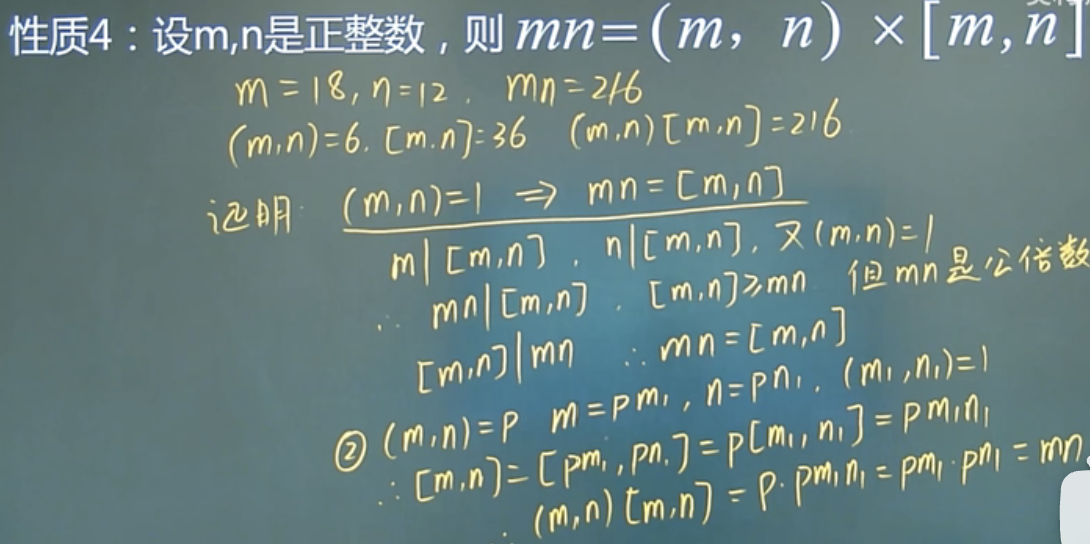 性质4：设m,n是正整数，则 mn=(m, n) ×[m,n]
m=18, n=12. mn=216
(m,n)=6. [m.n]=36 (m,n)[m,n]=216
证明: (m,n)=1 ⇒ mn=[m,n]
m|[m,n], n|[m,n], 又(m,n)=1
∴ mn|[m,n]. [m,n]≥mn 但mn是公倍数
[m,n]|mn ∴ mn=[m,n]
② (m,n)=p m=pm₁, n=pn₁, (m₁,n₁)=1
∴[m,n]=[pm₁,pn₁]=p[m₁,n₁]=pm₁n₁
∴ (m,n)[m,n]=p·pm₁n₁=pm₁·pn₁=mn.